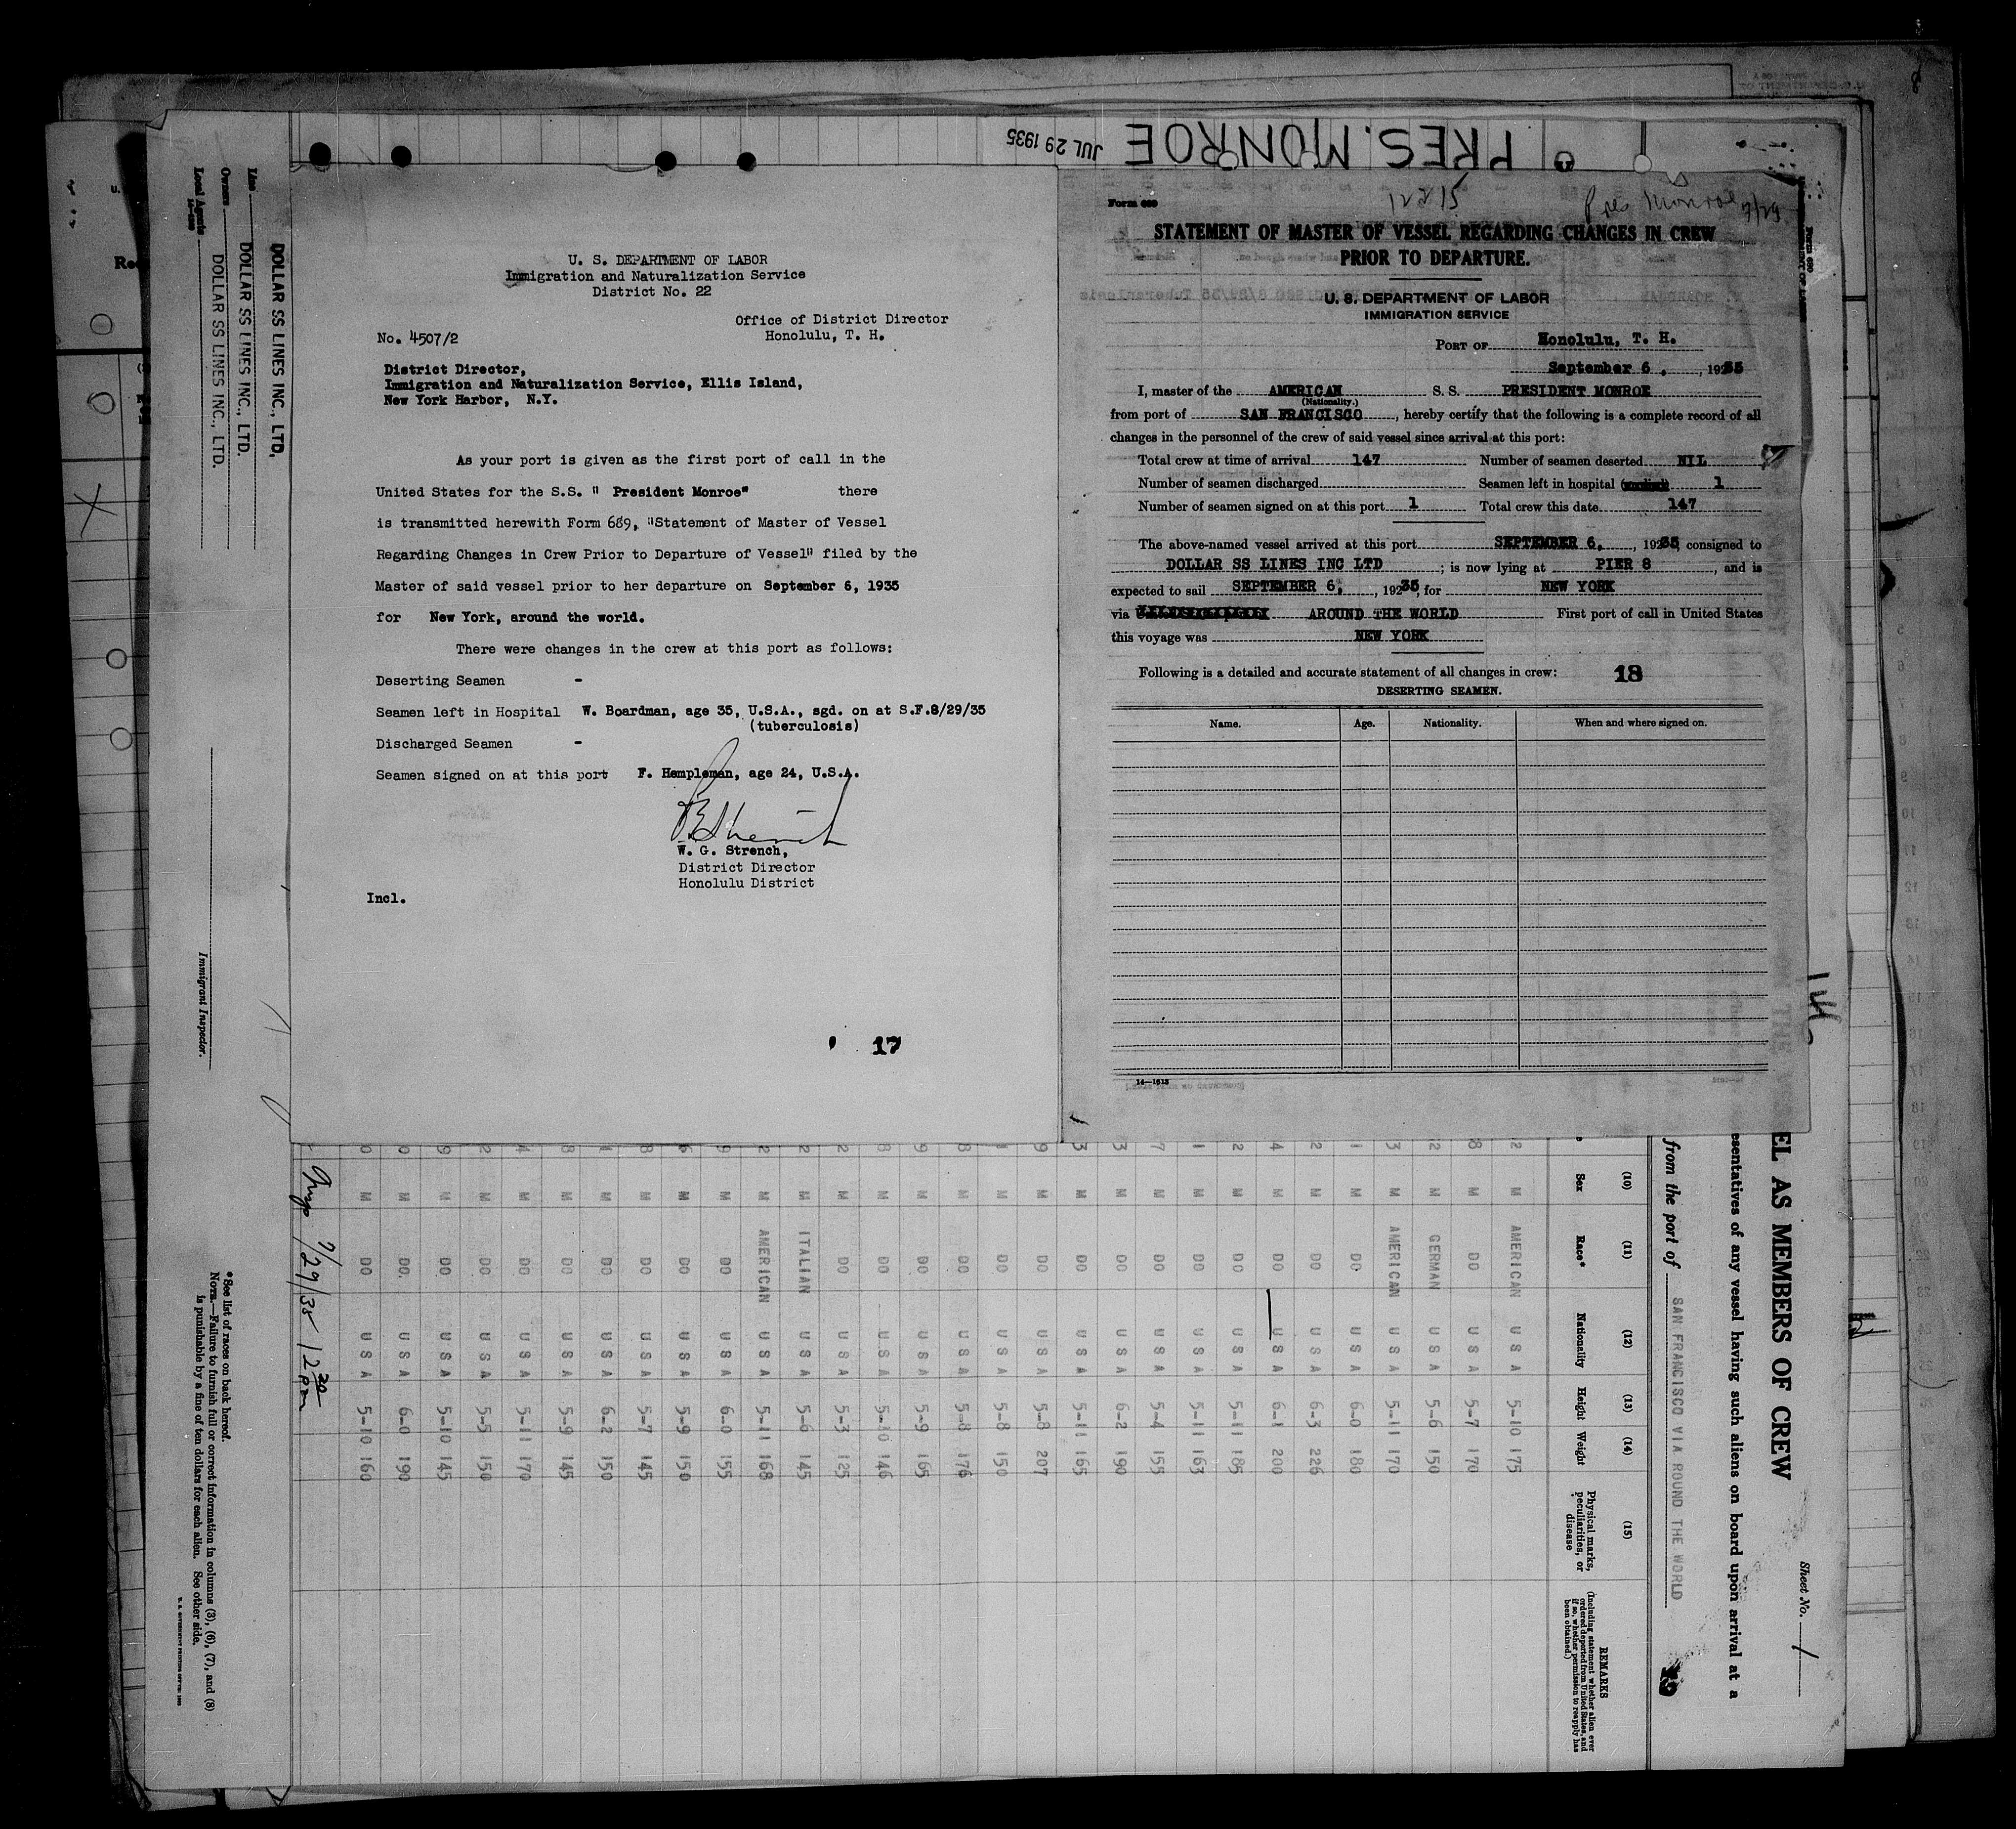 PRES. MONROE
JUL 29 1935
U. S. DEPARTMENT OF LABOR
Immigration and Naturalization Service
District No. 22
Office of District Director
No. 4507/2 Honolulu, T. H.
District Director,
Immigration and Naturalization Service, Ellis Island,
New York Harbor, N.Y.
As your port is given as the first port of call in the
United States for the S.S. " President Monroe" there
is transmitted herewith Form 689, "Statement of Master of Vessel
Regarding Changes in Crew Prior to Departure of Vessel" filed by the
Master of said vessel prior to her departure on September 6, 1935
for New York, around the world.
There were changes in the crew at this port as follows:
Deserting Seamen -
Seamen left in Hospital W. Boardman, age 35, U.S.A., sgd. on at S.F.8/29/35
(tuberculosis)
Discharged Seamen -
Seamen signed on at this port F. Hempleman, age 24, U.S.A.
W. G. Strench,
District Director
Honolulu District
Incl.
17
Form 689
1225
Pres Monroe 7/29
STATEMENT OF MASTER OF VESSEL REGARDING CHANGES IN CREW
PRIOR TO DEPARTURE.
U. S. DEPARTMENT OF LABOR
IMMIGRATION SERVICE
PORT OF Honolulu, T. H.
September 6, , 1935
I, master of the AMERICAN S. S. PRESIDENT MONROE
(Nationality.)
from port of SAN FRANCISCO, hereby certify that the following is a complete record of all
changes in the personnel of the crew of said vessel since arrival at this port:
Total crew at time of arrival 147 Number of seamen deserted NIL
Number of seamen discharged Seamen left in hospital 1
Number of seamen signed on at this port 1 Total crew this date 147
The above-named vessel arrived at this port SEPTEMBER 6, , 1935, consigned to
DOLLAR SS LINES INC LTD ; is now lying at PIER 8 , and is
expected to sail SEPTEMBER 6, , 1935, for NEW YORK
via AROUND THE WORLD First port of call in United States
this voyage was NEW YORK
Following is a detailed and accurate statement of all changes in crew: 18
DESERTING SEAMEN.
Name. Age. Nationality. When and where signed on.
14—1613
146
Line DOLLAR SS LINES INC., LTD,
Owners DOLLAR SS LINES INC., LTD.
Local Agents DOLLAR SS LINES INC., LTD.
Immigrant Inspector.
*See list of races on back hereof.
NOTE.—Failure to furnish full or correct information in columns (3), (6), (7), and (8)
is punishable by a fine of ten dollars for each alien. See other side.
Sheet No. 1
EL AS MEMBERS OF CREW
esentatives of any vessel having such aliens on board upon arrival at a
from the port of SAN FRANCISCO VIA ROUND THE WORLD
(10) (11) (12) (13) (14) (15)
Sex Race* Nationality Height Weight Physical marks, peculiarities, or disease
REMARKS
(Including statement whether alien ever
ordered deported from United States, and
if so, whether permission to reapply has
been obtained.)
2 M AMERICAN U S A 5-10 175
8 M DO U S A 5-7 170
2 M GERMAN U S A 5-6 150
3 M AMERICAN U S A 5-11 170
1 M DO U S A 6-0 180
2 M DO U S A 6-3 226
4 M DO U S A 6-1 200
2 M DO U S A 5-11 185
1 M DO U S A 5-11 163
7 M DO U S A 5-4 155
3 M DO U S A 6-2 190
3 M DO U S A 5-11 165
9 M DO U S A 5-8 207
1 M DO U S A 5-8 150
8 M DO U S A 5-8 176
9 M DO U S A 5-9 165
8 M DO U S A 5-10 146
2 M DO U S A 5-3 125
2 M ITALIAN U S A 5-6 145
2 M AMERICAN U S A 5-11 168
9 M DO U S A 6-0 155
6 M DO U S A 5-9 150
8 M DO U S A 5-7 145
1 M DO U S A 6-2 150
8 M DO U S A 5-9 145
4 M DO U S A 5-11 170
2 M DO U S A 5-5 150
9 M DO U S A 5-10 145
0 M DO. U S A 6-0 190
0 M DO U S A 5-10 160
7/29/35 12 30 pm